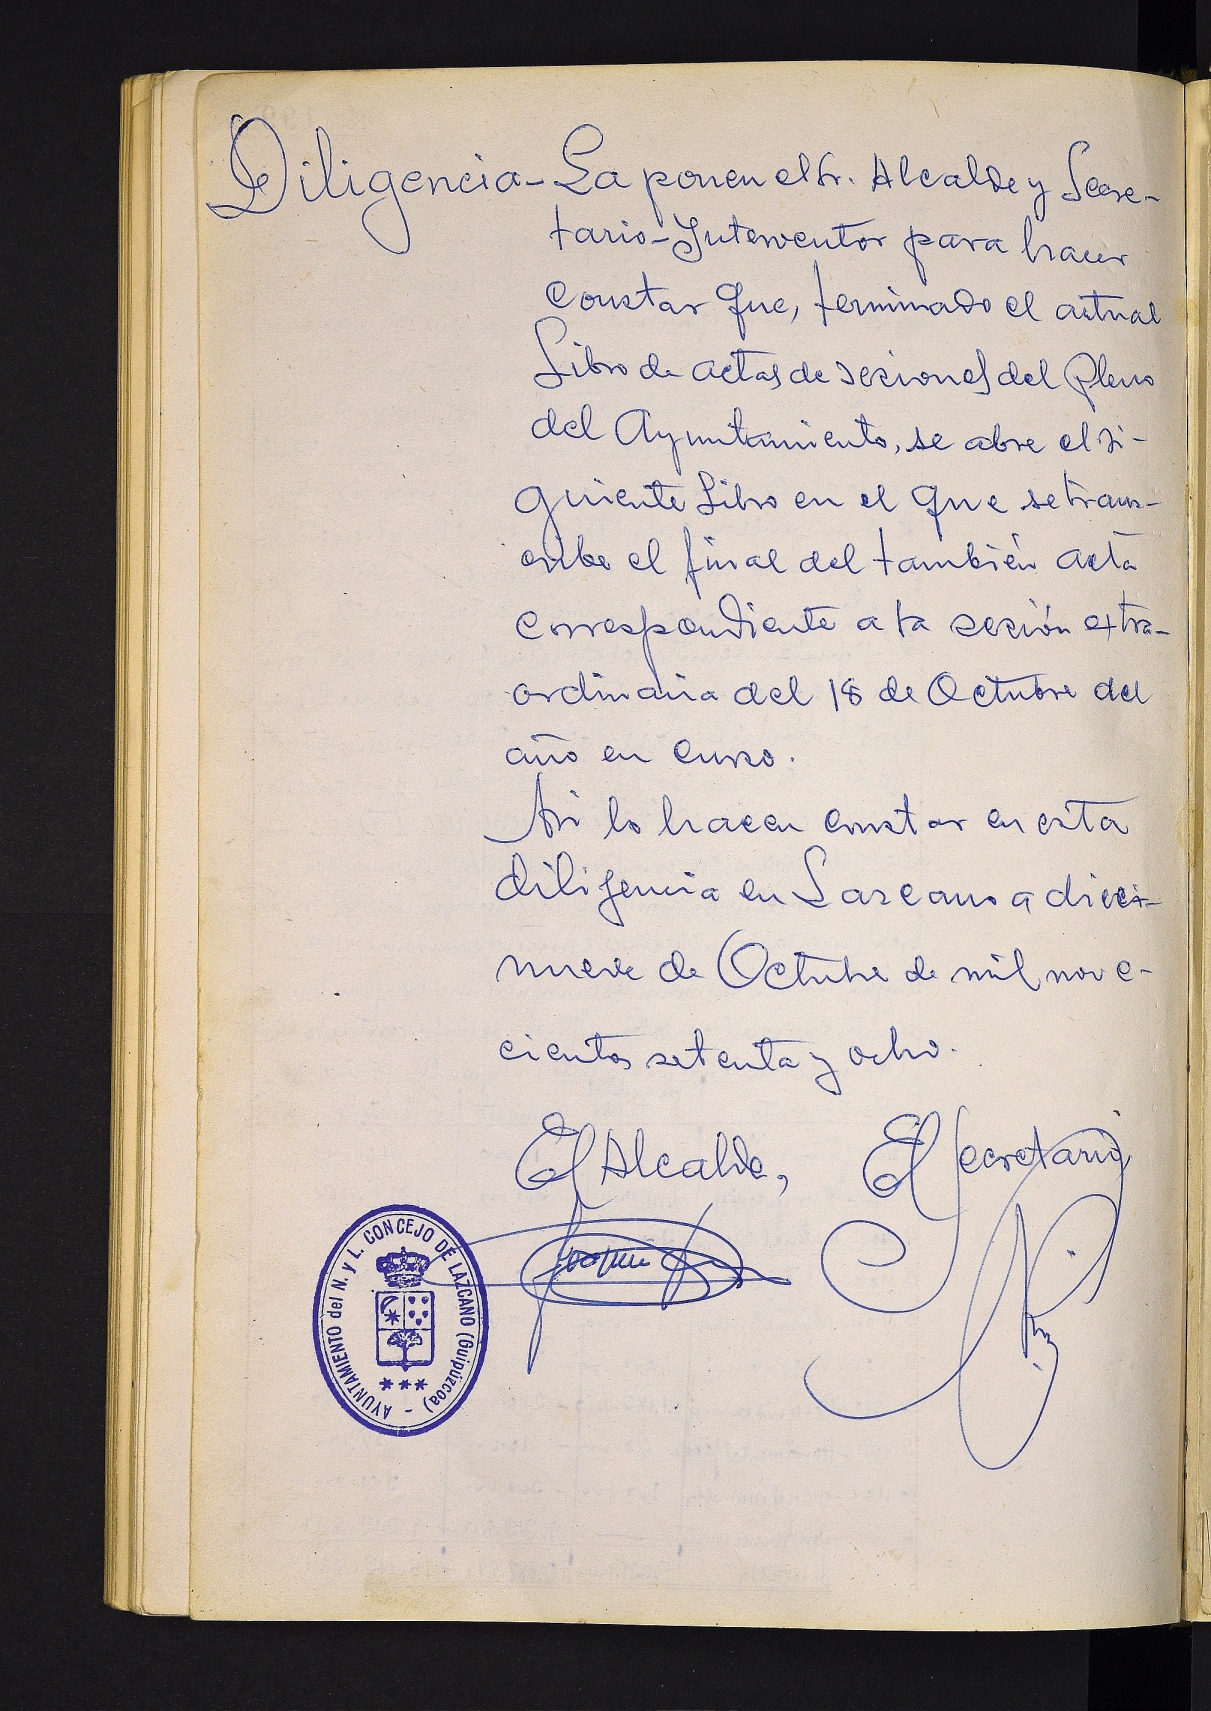 Diligencia - La ponen el Sr. Alcalde y Secre-
tario-Interventor para hacer
constar que, terminado el actual
Libro de actas de sesiones del Pleno
del Ayuntamiento, se abre el si-
guiente Libro en el que se trans-
cribe el final del también acta
correspondiente a la sesión extra-
ordinaria del 18 de Octubre del
año en curso.
Asi lo hacen constar en esta
diligencia en Lazcano a dieci-
nueve de Octubre de mil nove-
cientos setenta y ocho.
El Alcalde, El Secretario
AYUNTAMIENTO del N. y L. CONCEJO DE LAZCANO (Guipúzcoa) -